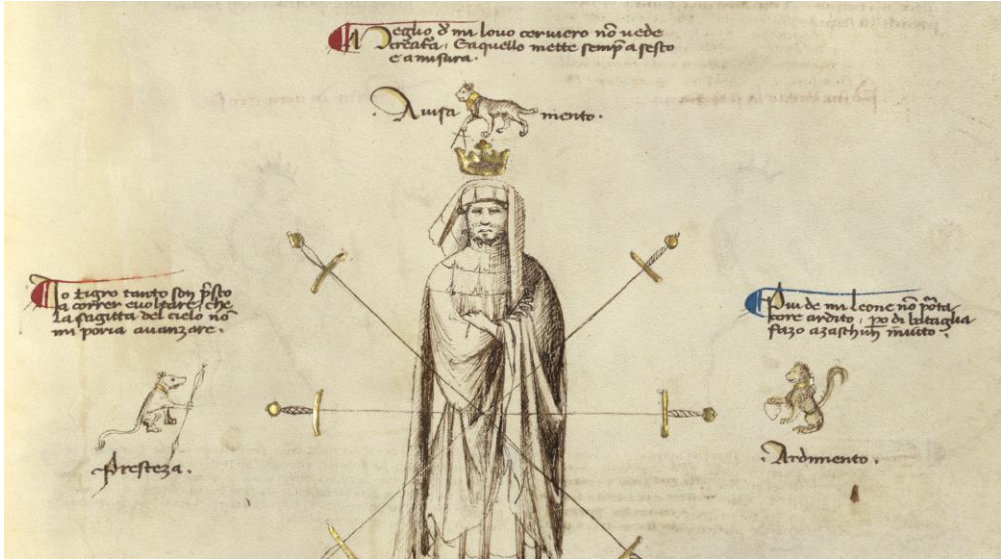 Meglio de mi lovo cerviero no vede
creatura. E aquello mette semp a sesto
e a misura.
Avisamento.
Io tigro tanto son psto
a correr e voltare, che
la sagitta del cielo no
mi poria avanzare.
Presteza.
Piu de mi leone no porta
core ardito, po di bataglia
fazo a zaschun invito.
Ardimento.